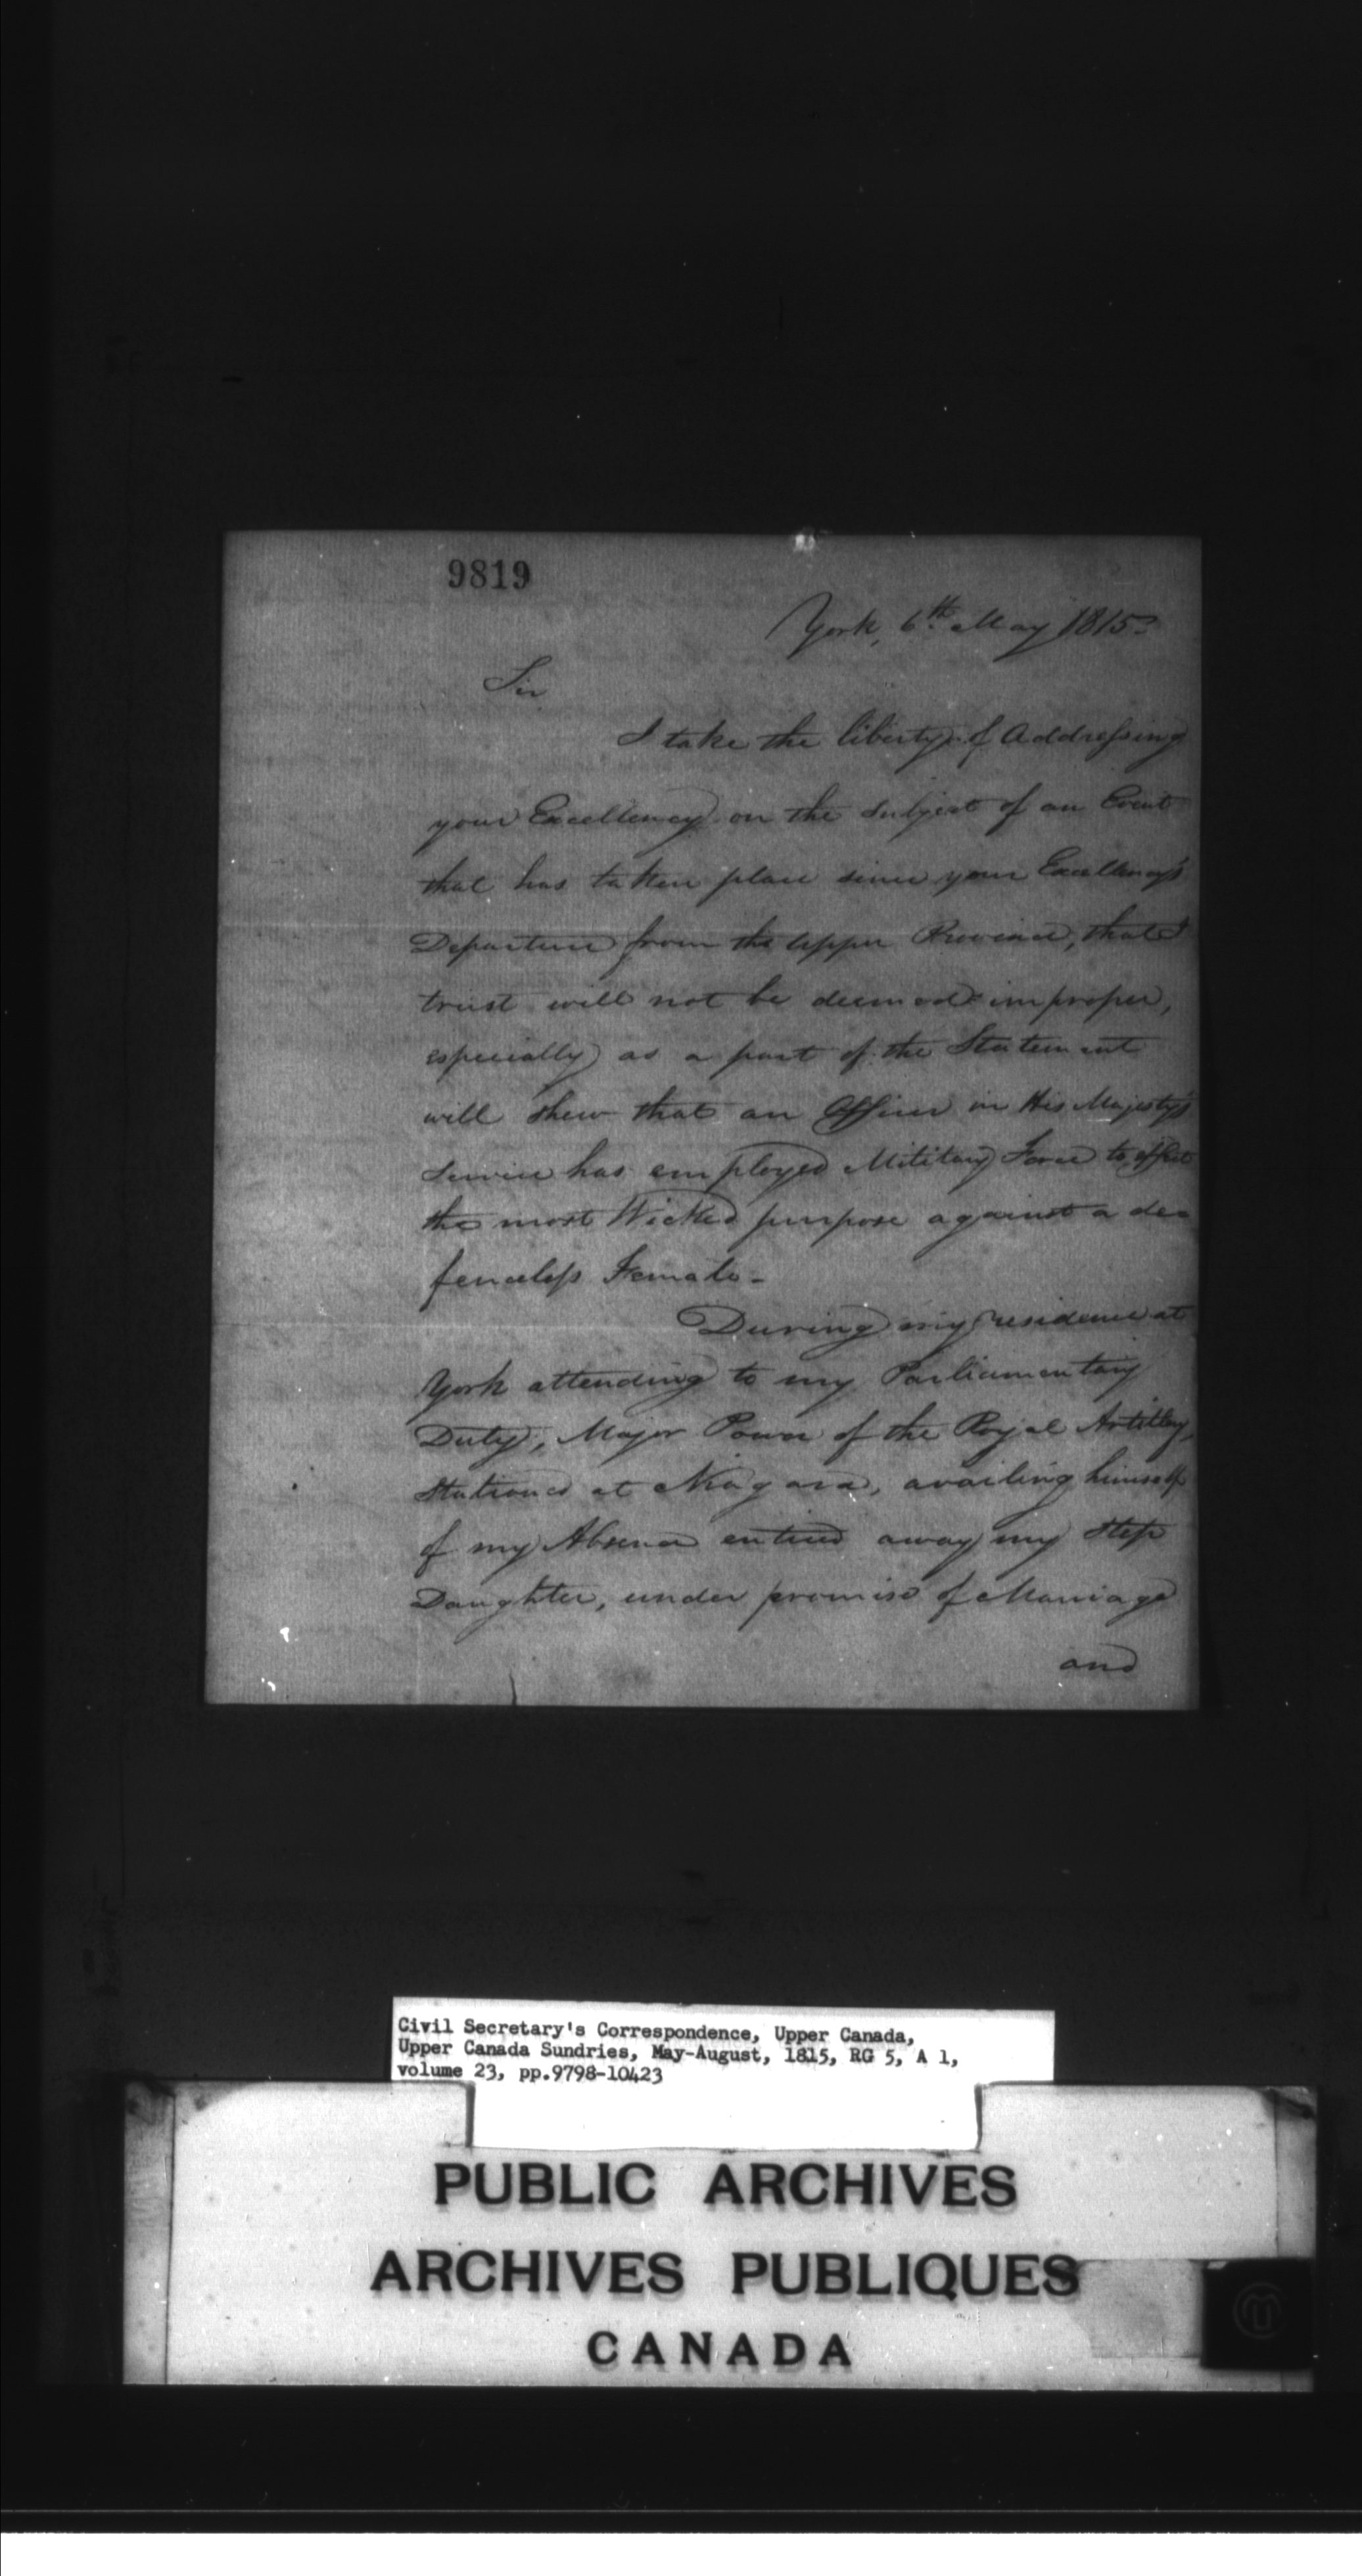 9819
York, 6th. May 1815.
Sir
I take the liberty of Addressing
your Excellency on the subject of an Event
that has taken place since your Excellency's
Departure from the upper Province, that I
trust will not be deemed improper,
especially as a part of the Statement
will shew that an Officer in His Majesty's
Service has employed Military Force to effect
the most Wicked purpose against a de=
fenceless Female -
During my residence at
York attending to my Parliamentary
Duty, Major Power of the Royal Artillery,
stationed at Niagara, availing himself
of my Absence enticed away my Step
Daughter, under promise of Marriage
and
Civil Secretary's Correspondence, Upper Canada,
Upper Canada Sundries, May-August, 1815, RG 5, A 1,
volume 23, pp.9798-10423
PUBLIC ARCHIVES
ARCHIVES PUBLIQUES
CANADA